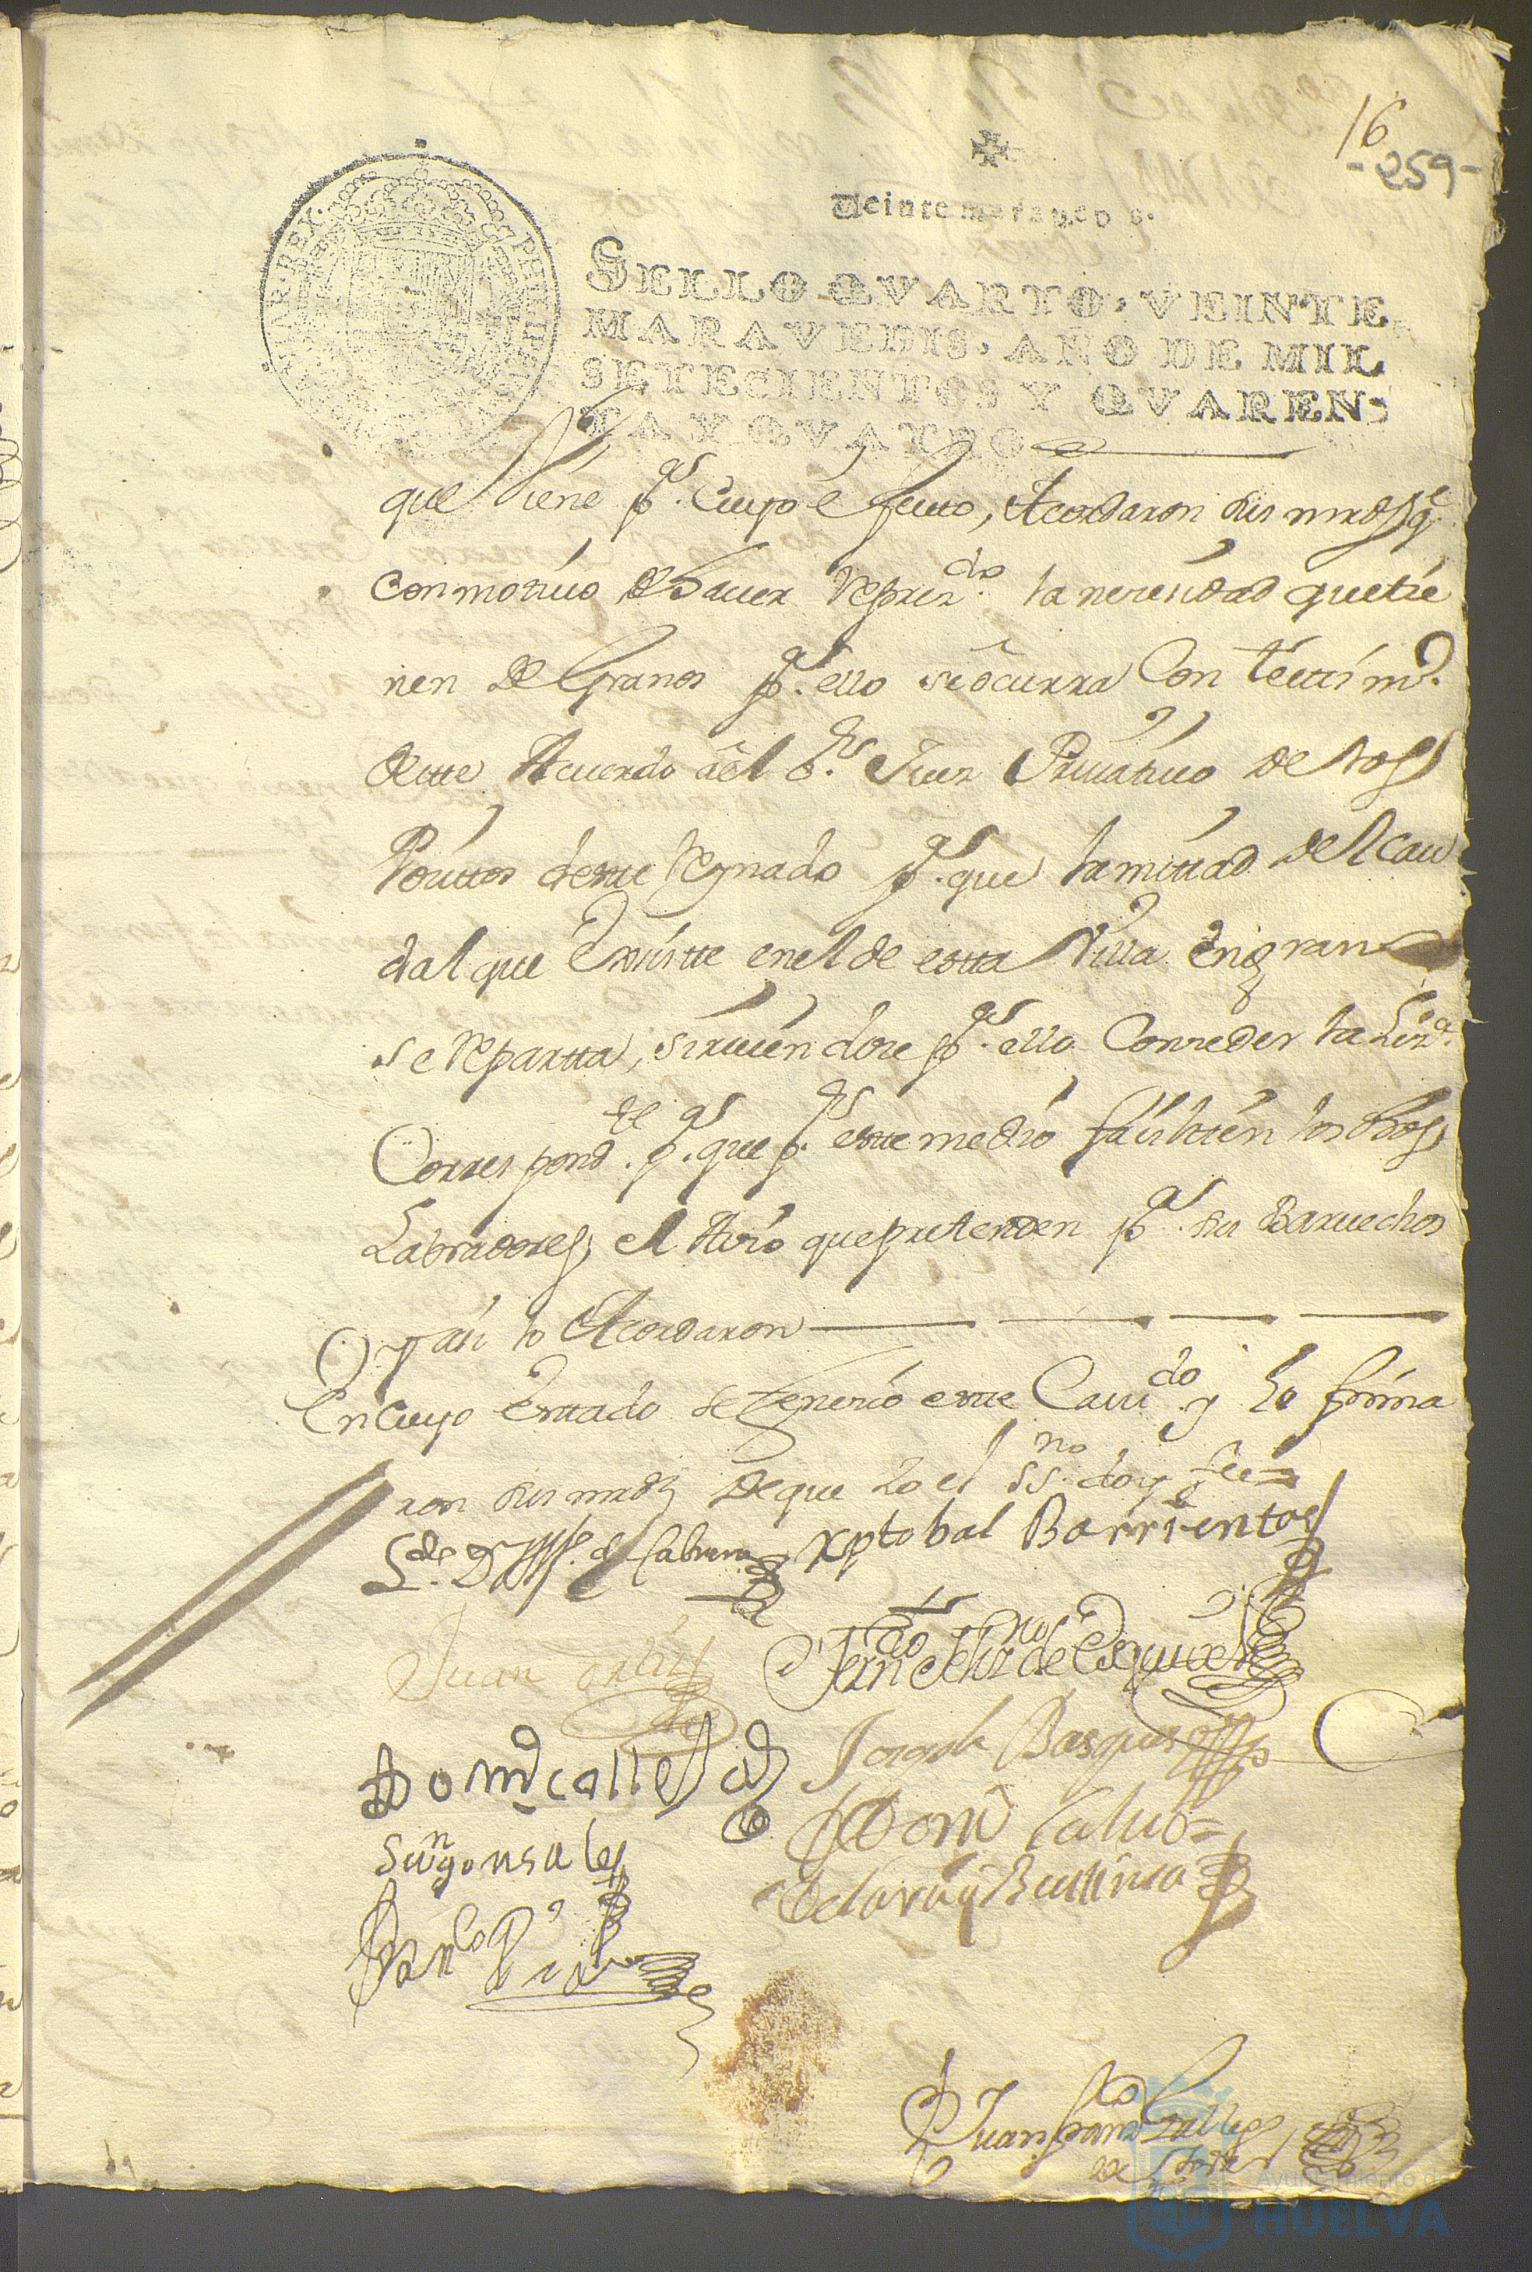 16
-259-
Veinte maravedis.
SELLO QVARTO, VEINTE
MARAVEDIS, AÑO DE MIL
SETECIENTOS Y QVAREN-
TA Y QVATRO
PHILIPPUS REX
que tiene pª. Cuyo efecto, Acordaron sus mrds qe
con motivo de haver represdo. la nesesidad que tie
nen de Granos pª. ello se ocurra con testim.
deste Acuerdo ael Sr. Juez Privativo de los
Positos deste Reynado pª. que la mitad del cau
dal que existte en el de estta Villa en gran
se repartta, sirviendose pª. ello Conseder la Lizª.
Correspondte. pª. que pr. este medio faciliten los dhos
Labradores el Avio que pretenden pª. sus Barvechos
y asi lo Acordaron
En cuyo esttado se fenecio este Cavdo. y lo firma
ron sus mrds de que Yo el ssno. doy fee=
Lde. Dn de Cabrera Xptobal Barrientos
Juan Ortiz
Ferndo de Esquivel
Joseph Basques
Domo calles
Domo Calvo
gonsales
Franco
Juan Franco Gallegos
Ayuntamiento de
HUELVA